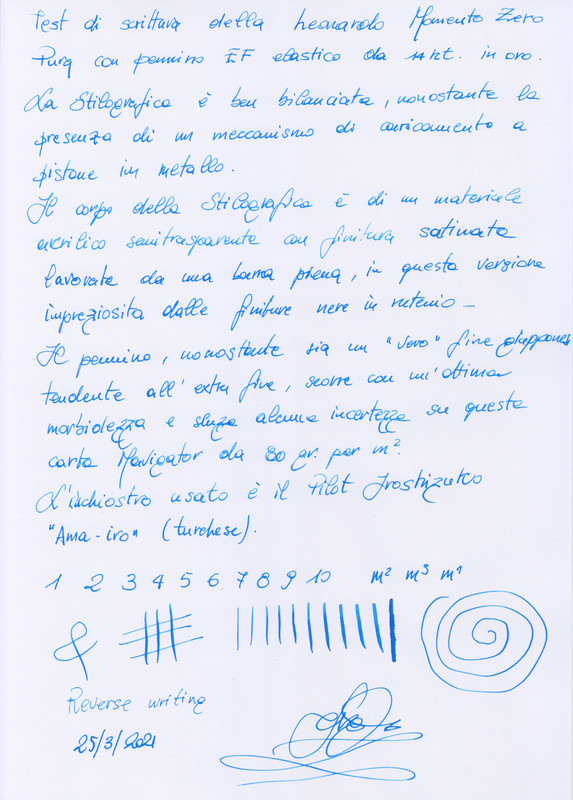 Test di scrittura della Leonardo Momento Zero
Pura con pennino EF elastico da 14 kt. in oro.
La Stilografica è ben bilanciata, nonostante la
presenza di un meccanismo di caricamento a
pistone in metallo.
Il corpo della Stilografica è di un materiale
acrilico semitrasparente con finitura satinata
lavorata da una barra piena, in questa versione
impreziosita dalle finiture nere in rutenio -
Il pennino, nonostante sia un "vero" fine giapponese
tendente all'extra fine, scorre con un'ottima
morbidezza e senza alcuna incertezza su questa
carta Navigator da 80 gr. per m².
L'inchiostro usato è il Pilot Iroshizuku
"Ama-iro" (turchese).
1 2 3 4 5 6 7 8 9 10 m² m³
&
Reverse writing
25/3/2021